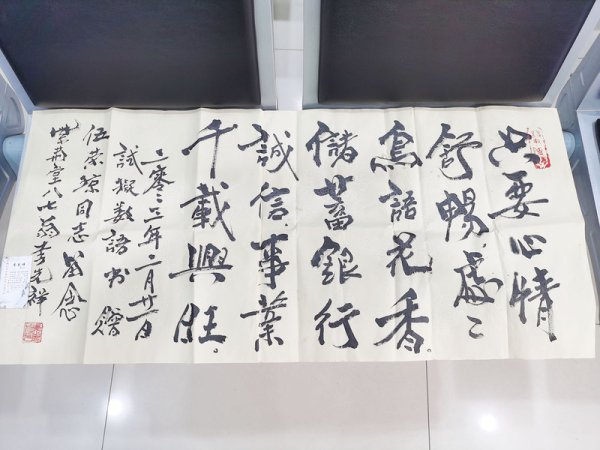 只要心情
舒暢,處々
鳥語花香。
儲蓄銀行
誠信事業
千載興旺。
二零二三年二月廿一日
試擬数語書贈
同志留念
八七翁李光祥